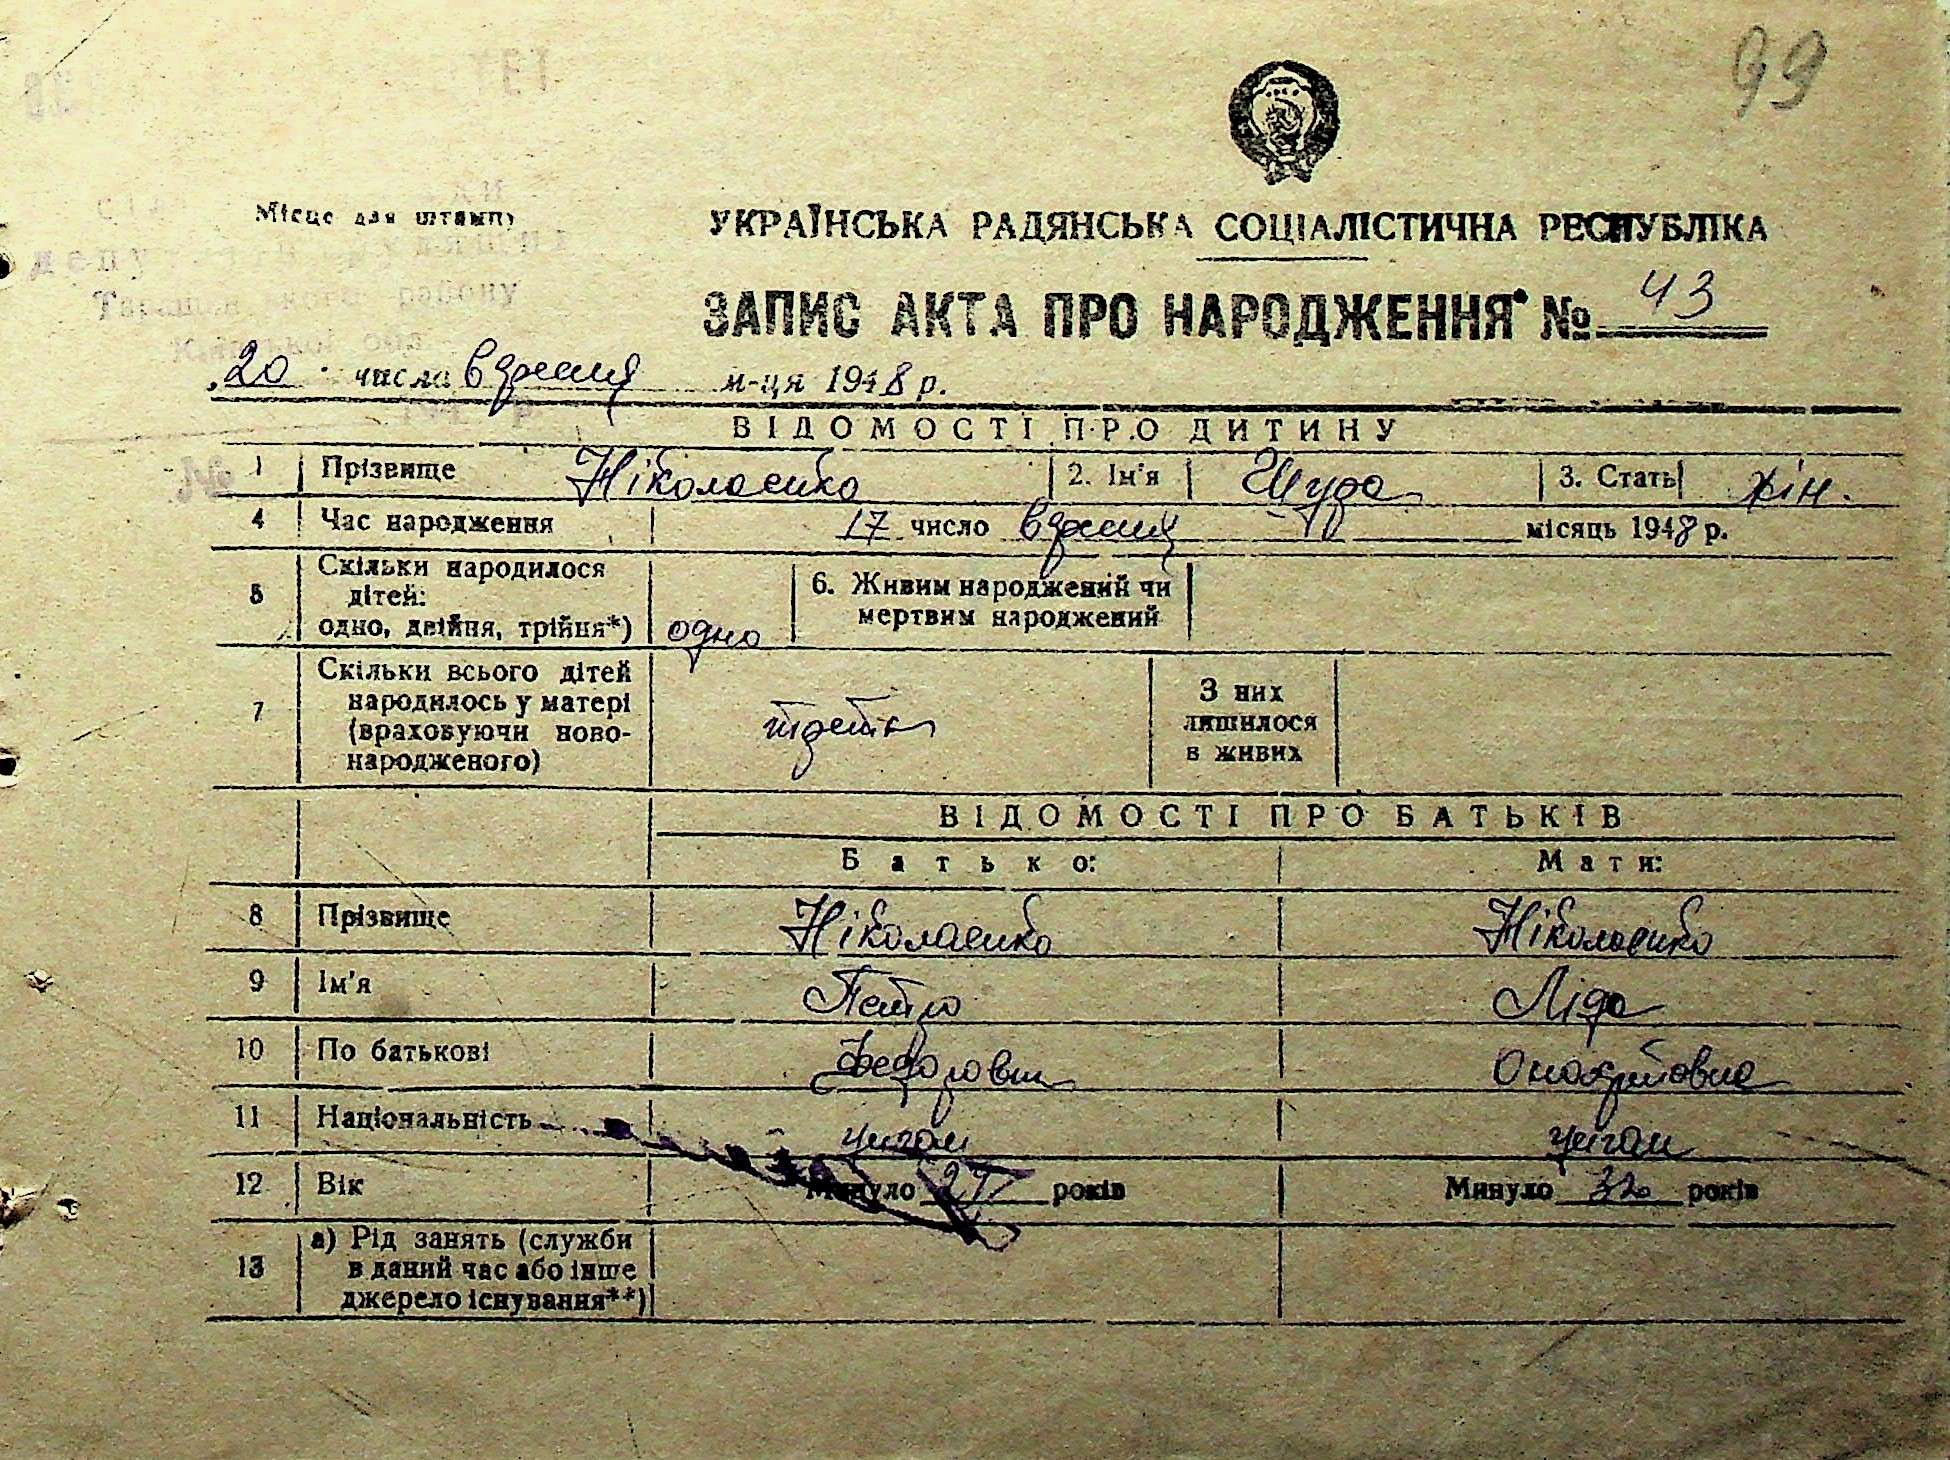 99
Місце для штампу
УКРАЇНСЬКА РАДЯНСЬКА СОЦІАЛІСТИЧНА РЕСПУБЛІКА
ЗАПИС АКТА ПРО НАРОДЖЕННЯ № 43
району
20 числа вересня м-ця 1948 р.
ВІДОМОСТІ ПРО ДИТИНУ
1 Прізвище Ніколаєнко 2. Ім'я 3. Стать жін.
4 Час народження 17 число вересня місяць 1948 р.
Скільки народилося
5 дітей:
одно, двійня, трійня*) одно
6. Живим народжений чи
мертвим народжений
Скільки всього дітей
7 народилось у матері
(враховуючи ново-
народженого)
З них
лишилося
в живих
ВІДОМОСТІ ПРО БАТЬКІВ
Батько: Мати:
8 Прізвище Ніколаєнко Ніколаєнко
9 Ім'я Петро Ліда
10 По батькові Федорович
11 Національність циган циган
12 Вік Минуло 27 років Минуло 32 років
а) Рід занять (служби
13 в даний час або інше
джерело існування**)